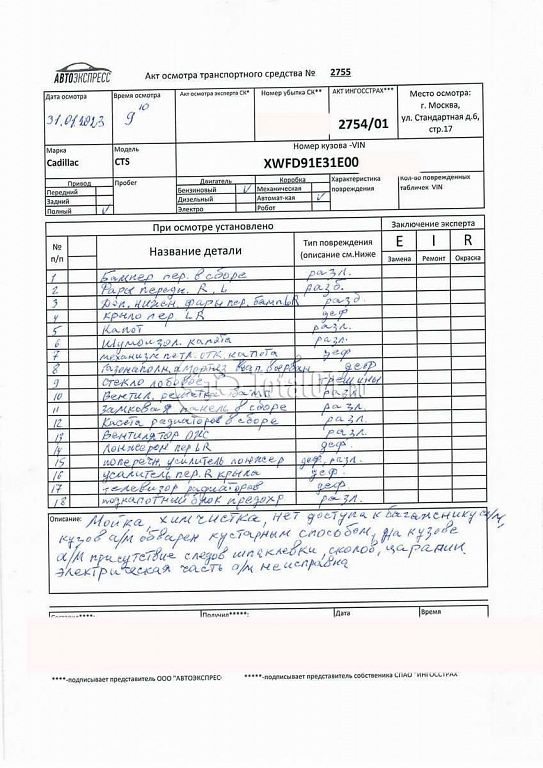 АВТОЭКСПРЕСС
Акт осмотра транспортного средства № 2755
Дата осмотра
31.01.2023
Время осмотра
9 10
Акт осмотра эксперта СК*
Номер убытка СК**
АКТ ИНГОССТРАХ***
2754/01
Место осмотра:
г. Москва,
ул. Стандартная д.6,
стр.17
Марка
Cadillac
Модель
CTS
Номер кузова -VIN
XWFD91E31E00
Привод
Передний
Задний
Полный V
Пробег
Двигатель
Бензиновый V
Дизельный
Электро
Коробка
Механическая
Автомат-кая V
Робот
Характеристика
повреждения
Кол-во поврежденных
табличек VIN
При осмотре установлено
Заключение эксперта
№
п/п
Название детали
Тип повреждения
(описание см.Ниже
E I R
Замена Ремонт Окраска
1 Бампер пер. в сборе разл.
2 Фары передн. R, L разб.
3 Доп. нижн. фары пер. бамп LR разб.
4 крыло пер. LR деф
5 Капот разл.
6 Шумоизол. капота разл.
7 механизм петл. отк. капота деф
8 Газонаполн. амортиз деф
9 стекло лобовое трещины
10 Вентил. решетка разл.
11 Замковая панель в сборе разл.
12 Касета радиаторов в сборе разл.
13 Вентилятор ДВС разл.
14 Лонжерон пер LR деф.
15 поперечн. усилитель лонжер деф. разл.
16 усилитель пер. R крыла деф.
17 телевизор радиаторов деф
18 подкапотный блок предохр разл.
Описание: Мойка, химчистка, нет доступа к багажнику а/м,
кузов а/м обварен кустарным способом, на кузове
а/м присутствие следов шпаклевки, сколов, царапин.
Электрическая часть а/м неисправна
Получил*****:
Дата
Время
****-подписывает представитель ООО "АВТОЭКСПРЕС-
*****-подписывает представитель собственика СПАО "ИНГОССТРАХ"